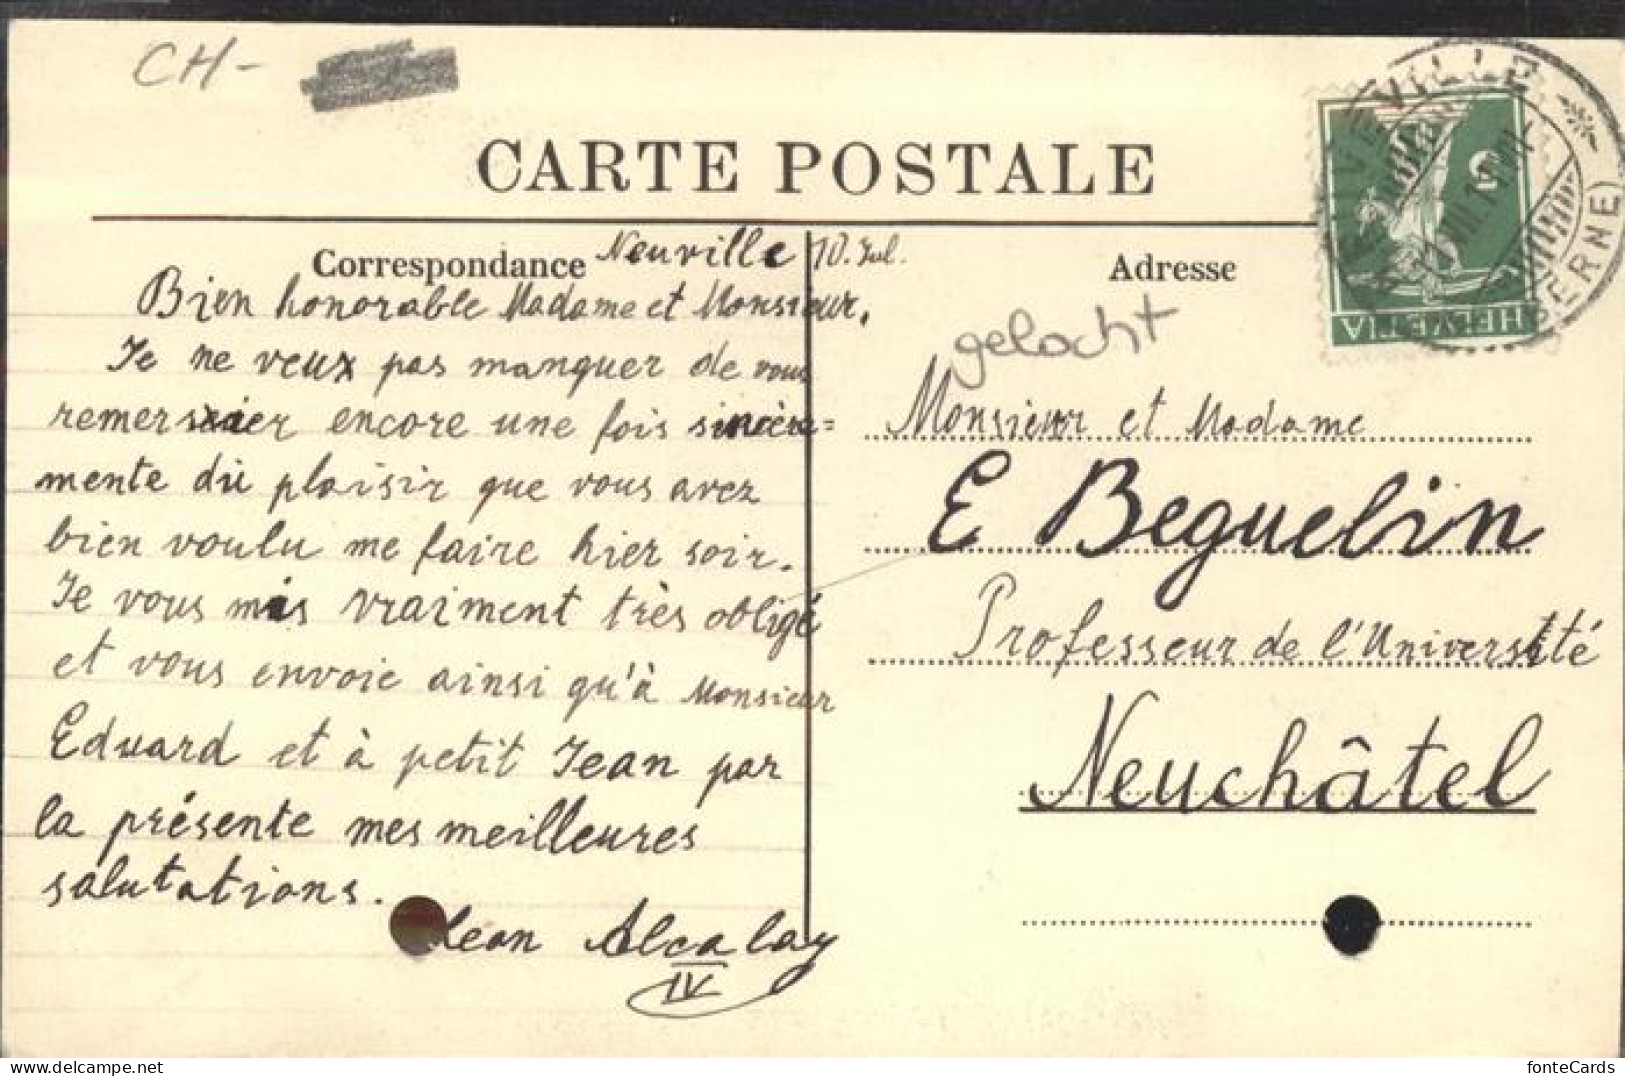 CH-
CARTE POSTALE
Correspondance
Neuville 10. Jul.
Bien honorable Madame et Monsieur,
Je ne veux pas manquer de vous
remercier encore une fois sincère=
mente du plaisir que vous avez
bien voulu me faire hier soir.
Je vous suis vraiment très obligé
et vous envoie ainsi qu'à Monsieur
Eduard et à petit Jean par
la présente mes meilleures
salutations.
Léon Alcalay
IV
Adresse
gelocht
Monsieur et Madame
E Beguelin
Professeur de l'Université
Neuchâtel
HELVETIA
5
NEUVEVILLE
(BERNE)
fonteCards